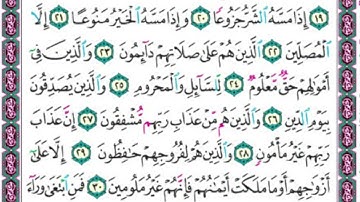 ١٩ إِذَا مَسَّهُ ٱلشَّرُّ جَزُوعًا ٢٠ وَإِذَا مَسَّهُ ٱلْخَيْرُ مَنُوعًا ٢١ إِلَّا
ٱلْمُصَلِّينَ ٢٢ ٱلَّذِينَ هُمْ عَلَىٰ صَلَاتِهِمْ دَآئِمُونَ ٢٣ وَٱلَّذِينَ فِىٓ
أَمْوَٰلِهِمْ حَقٌّ مَّعْلُومٌ ٢٤ لِّلسَّآئِلِ وَٱلْمَحْرُومِ ٢٥ وَٱلَّذِينَ يُصَدِّقُونَ
بِيَوْمِ ٱلدِّينِ ٢٦ وَٱلَّذِينَ هُم مِّنْ عَذَابِ رَبِّهِم مُّشْفِقُونَ ٢٧ إِنَّ عَذَابَ
رَبِّهِمْ غَيْرُ مَأْمُونٍ ٢٨ وَٱلَّذِينَ هُمْ لِفُرُوجِهِمْ حَٰفِظُونَ ٢٩ إِلَّا عَلَىٰٓ
أَزْوَٰجِهِمْ أَوْ مَا مَلَكَتْ أَيْمَٰنُهُمْ فَإِنَّهُمْ غَيْرُ مَلُومِينَ ٣٠ فَمَنِ ٱبْتَغَىٰ وَرَآءَ